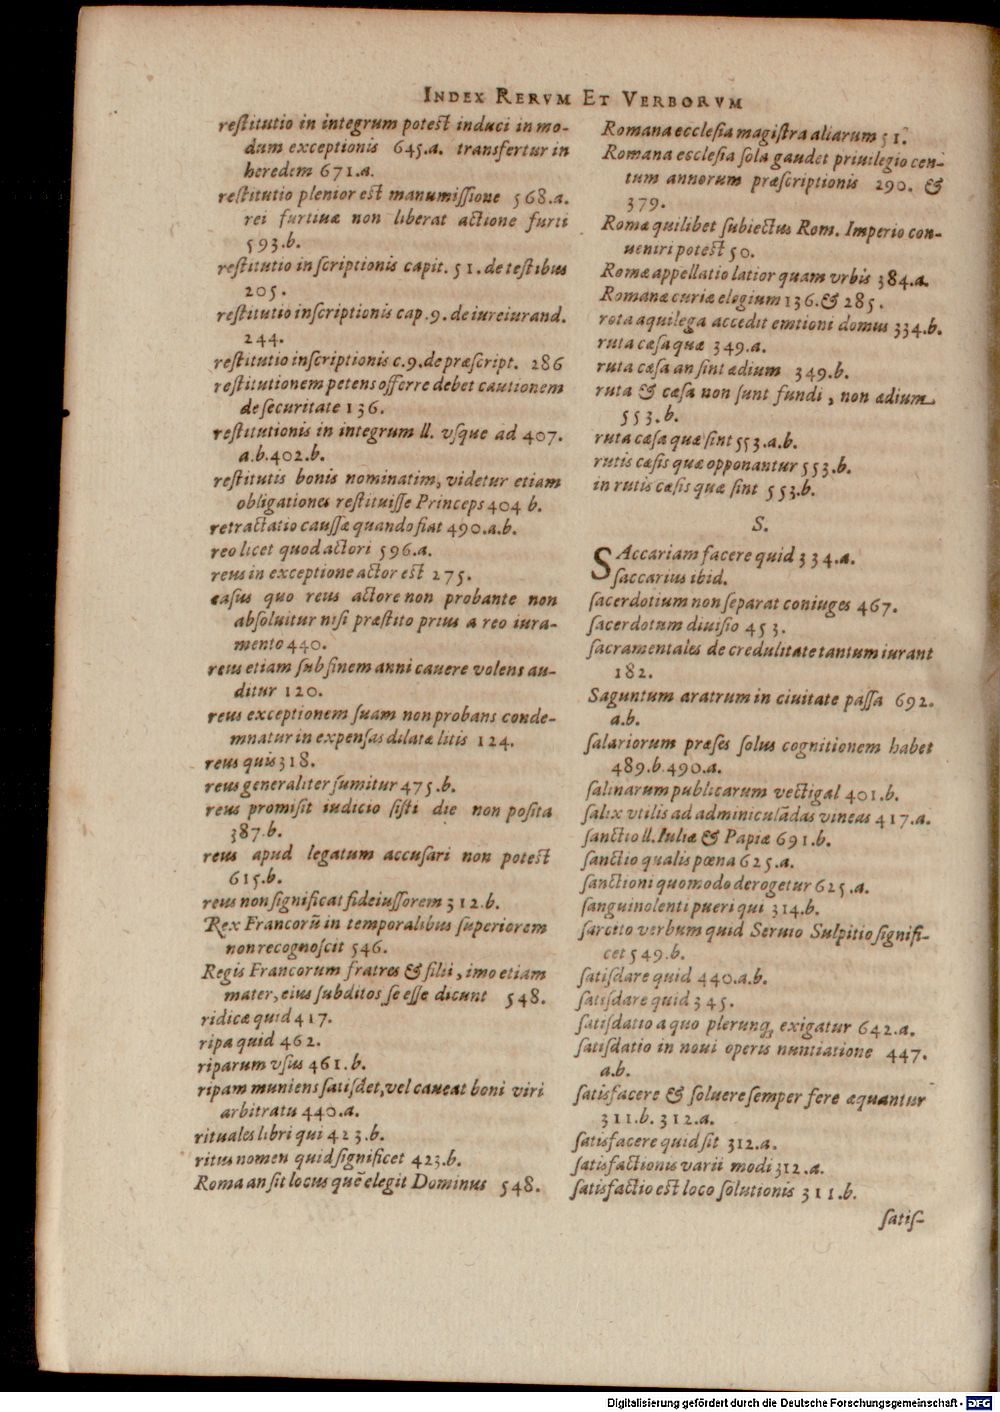 INDEX RERVM ET VERBORVM
reſtitutio in integrum poteſt induci in mo-
dum exceptionis 645.a. transfertur in
heredem 671.a.
reſtitutio plenior eſt manumiſſione 568.a.
rei furtiuæ non liberat actione furti
593.b.
reſtitutio inſcriptionis capit. 51. de teſtibus
205.
reſtitutio inſcriptionis cap.9. de iureiurand.
244.
reſtitutio inſcriptionis c.9.de præſcript. 286
reſtitutionem petens offerre debet cautionem
de ſecuritate 136.
reſtitutionis in integrum ll. vſque ad 407.
a.b.402.b.
reſtitutis bonis nominatim, videtur etiam
obligationes reſtituiſſe Princeps 404 b.
retractatio cauſſæ quando fiat 490.a.b.
reo licet quod actori 596.a.
reus in exceptione actor eſt 275.
caſus quo reus actore non probante non
abſoluitur niſi præſtito prius a reo iura-
mento 440.
reus etiam ſub finem anni cauere volens au-
ditur 120.
reus exceptionem ſuam non probans conde-
mnatur in expenſas dilatæ litis 124.
reus quis 318.
reus generaliter ſumitur 475.b.
reus promiſit iudicio ſiſti die non poſita
387.b.
reus apud legatum accuſari non poteſt
615.b.
reus non ſignificat fideiuſſorem 312.b.
Rex Francorū in temporalibus ſuperiorem
non recognoſcit 546.
Regis Francorum fratres & filii, imo etiam
mater, eius ſubditos ſe eſſe dicunt 548.
ridicæ quid 417.
ripa quid 462.
riparum vſus 461.b.
ripam muniens ſatiſdet, vel caueat boni viri
arbitratu 440.a.
rituales libri qui 423.b.
ritus nomen quid ſignificet 423.b.
Roma an ſit locus quē elegit Dominus 548.
Romana eccleſia magiſtra aliarum 51.
Romana eccleſia ſola gaudet priuilegio cen-
tum annorum præſcriptionis 290. &
379.
Romæ quilibet ſubiectus Rom. Imperio con-
ueniri poteſt 50.
Romæ appellatio latior quam vrbis 384.a.
Romanæ curiæ elogium 136. & 285.
rota aquilega accedit emtioni domus 334.b.
ruta cæſa quæ 349.a.
ruta cæſa an ſint ædium 349.b.
ruta & cæſa non ſunt fundi, non ædium
553.b.
ruta cæſa quæ ſint 553.a.b.
rutis cæſis quæ opponantur 553.b.
in rutis cæſis quæ ſint 553.b.
S.
SAccariam facere quid 334.a.
ſaccarius ibid.
ſacerdotium non ſeparat coniuges 467.
ſacerdotum diuiſio 453.
ſacramentales de credulitate tantum iurant
182.
Saguntum aratrum in ciuitate paſſa 692.
a.b.
ſalariorum præſes ſolus cognitionem habet
489.b.490.a.
ſalinarum publicarum vectigal 401.b.
ſalix vtilis ad adminiculādas vineas 417.a.
ſanctio ll. Iuliæ & Papiæ 691.b.
ſanctio qualis pœna 625.a.
ſanctioni quomodo derogetur 625.a.
ſanguinolenti pueri qui 314.b.
ſarcito verbum quid Seruio Sulpitio ſignifi-
cet 549.b.
ſatiſdare quid 440.a.b.
ſatiſdare quid 345.
ſatiſdatio a quo plerunq; exigatur 642.a.
ſatiſdatio in noui operis nuntiatione 447.
a.b.
ſatisfacere & ſoluere ſemper fere æquantur
311.b. 312.a.
ſatisfacere quid ſit 312.a.
ſatisfactionis varii modi 312.a.
ſatisfactio eſt loco ſolutionis 311.b.
ſatiſ-
Digitalisierung gefördert durch die Deutsche Forschungsgemeinschaft - DFG